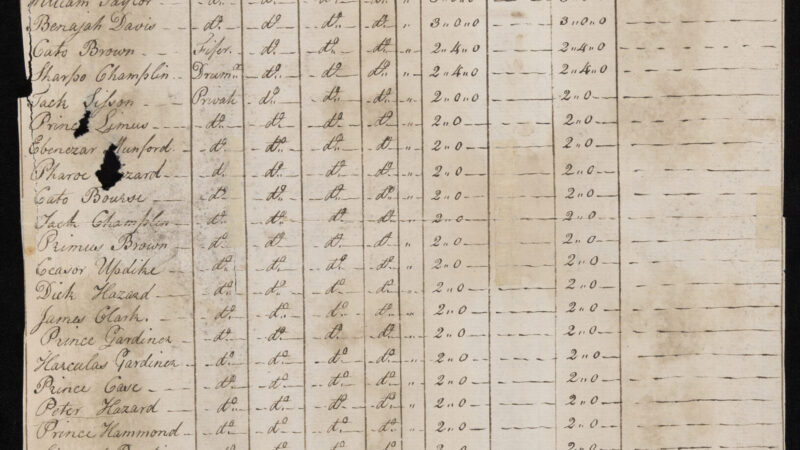 William Taylor - - d:o d:o d:o d:o " 3"0"0 3"0"0
Benajah Davis - d:o d:o d:o d:o " 3"0"0 3"0"0
Cato Brown - Fifer d:o d:o d:o " 2"4"0 2"4"0
Sharpo Champlin Drum:r d:o d:o d:o " 2"4"0 2"4"0
Jack Sisson Private d:o d:o d:o " 2"0"0 2"0
Prince Limus d:o d:o d:o d:o " 2"0 2"0
Ebenezar Munford d:o d:o d:o d:o " 2"0 2"0
Pharoe d:o d:o d:o d:o " 2"0 2"0
Cato Bourse d:o d:o d:o d:o " 2"0 2"0
Jack Champlin d:o d:o d:o d:o " 2"0 2"0
Primus Brown d:o d:o d:o d:o " 2"0 2"0
Ceasor Updike d:o d:o d:o d:o " 2"0 2"0
Dick Hazard d:o d:o d:o d:o " 2"0 2"0
James Clark. d:o d:o d:o d:o " 2"0 2"0
Prince Gardiner d:o d:o d:o d:o " 2"0 2"0
Harculas Gardiner d:o d:o d:o d:o " 2"0 2"0
Prince Case d:o d:o d:o d:o " 2"0 2"0
Peter Hazard d:o d:o d:o d:o " 2"0 2"0
Prince Hammond d:o d:o d:o d:o " 2"0 2"0